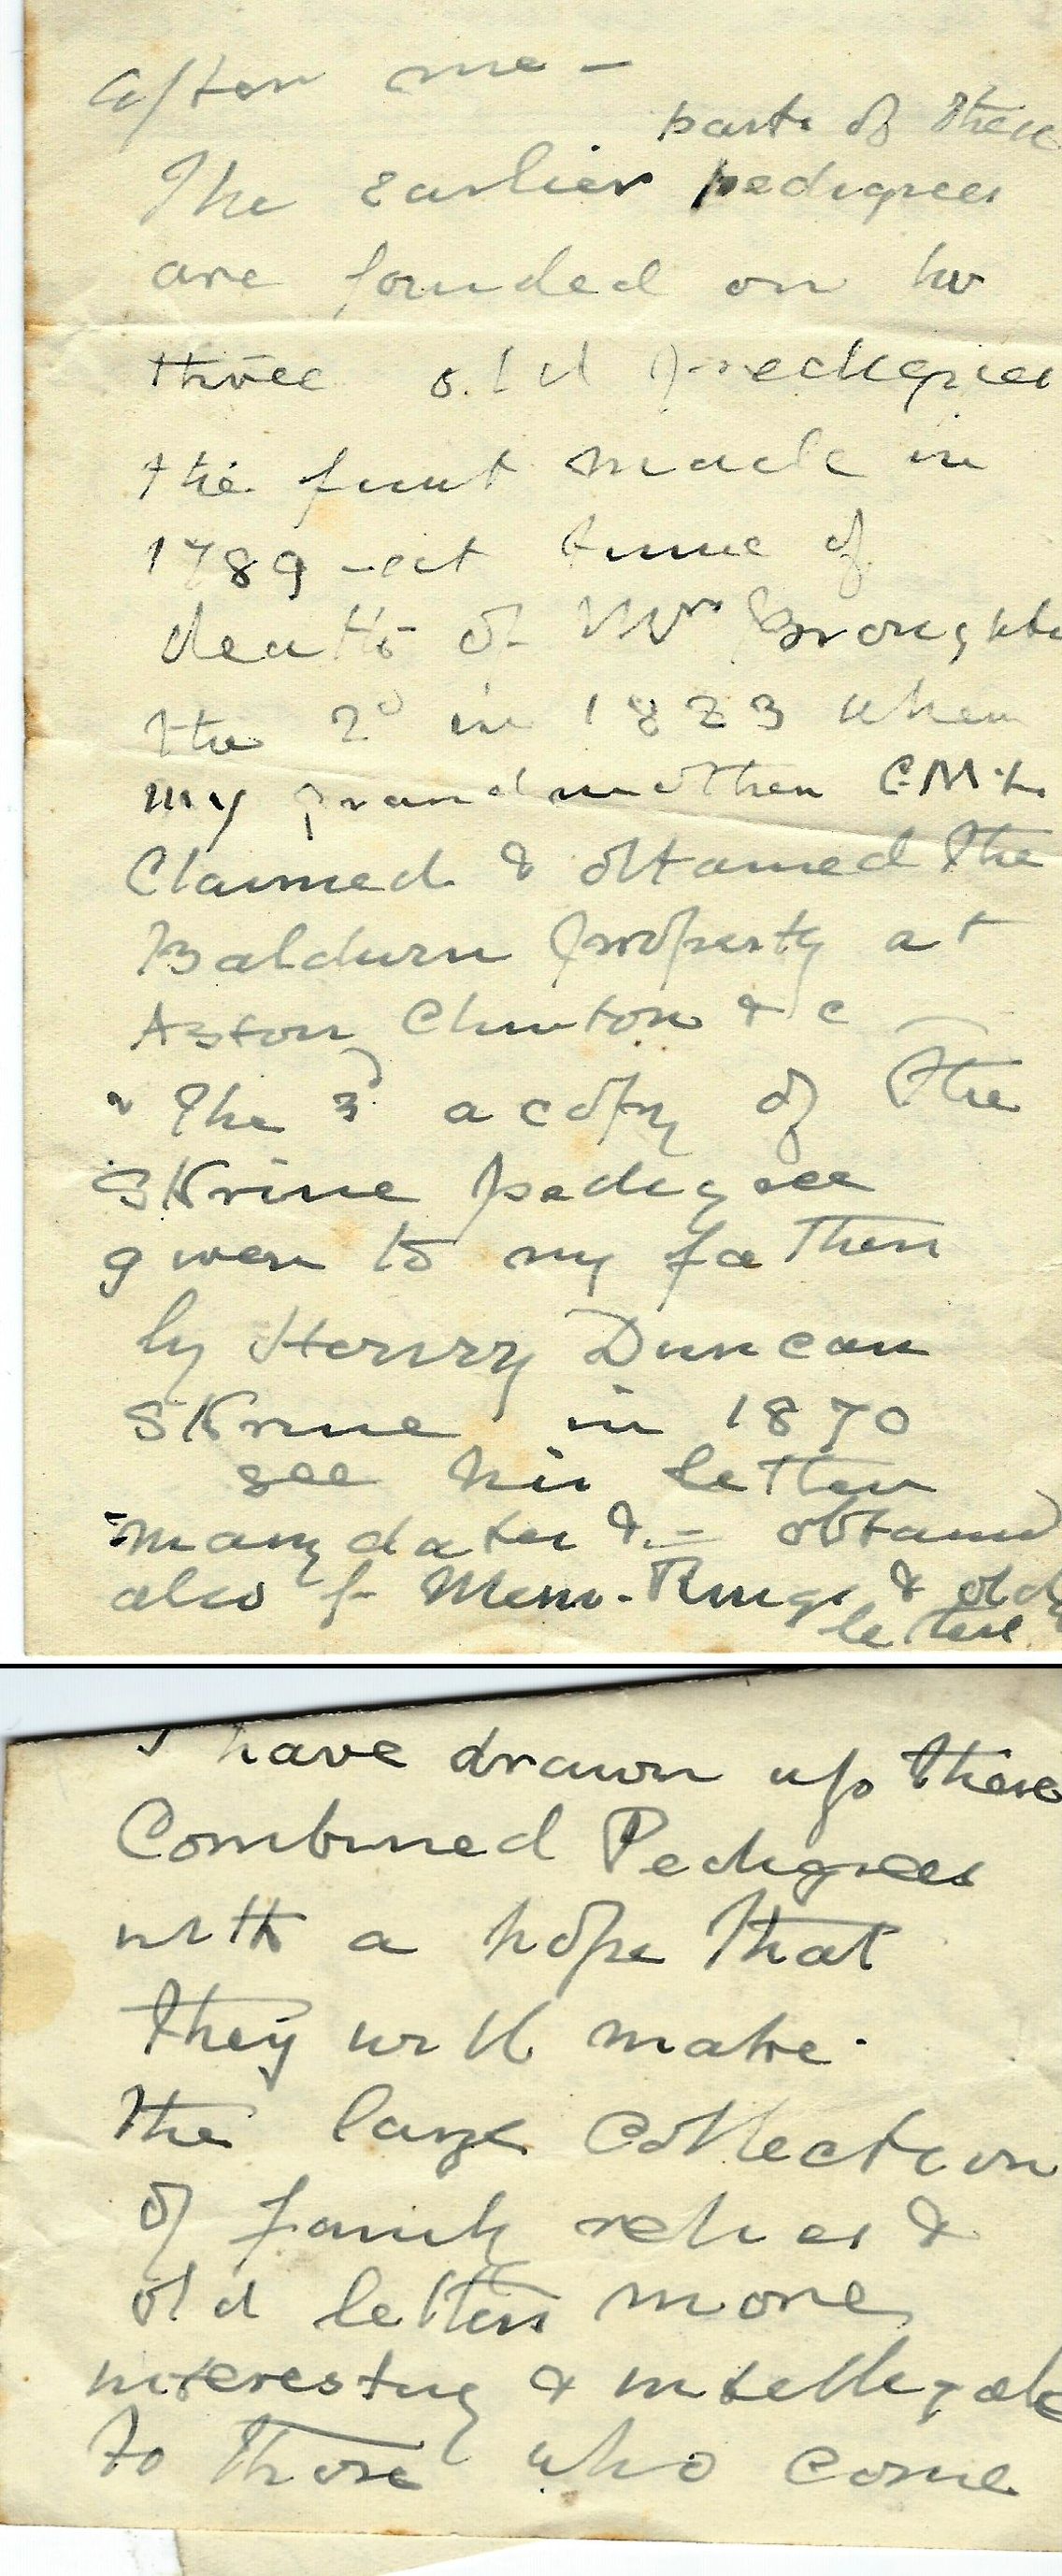 after me -
parts of these
The earlier pedigrees
are founded on
three old pedigrees
the first made in
1789 - at time of
death of Mrs Brought
the 2d in 1823 when
my grandmother C.M.
Claimed & obtained the
Baldwin property at
Aston Clinton & c
The 3d a copy of the
Skrine pedigree
given to my father
by Henry Duncan
Skrine in 1870
see his letter
many dates & = obtained
also f Mem. Rings & old
letters
I have drawn up these
Combined Pedigrees
with a hope that
they will make
the large Collection
of family relics &
old letters more
interesting & intelligable
to those who come